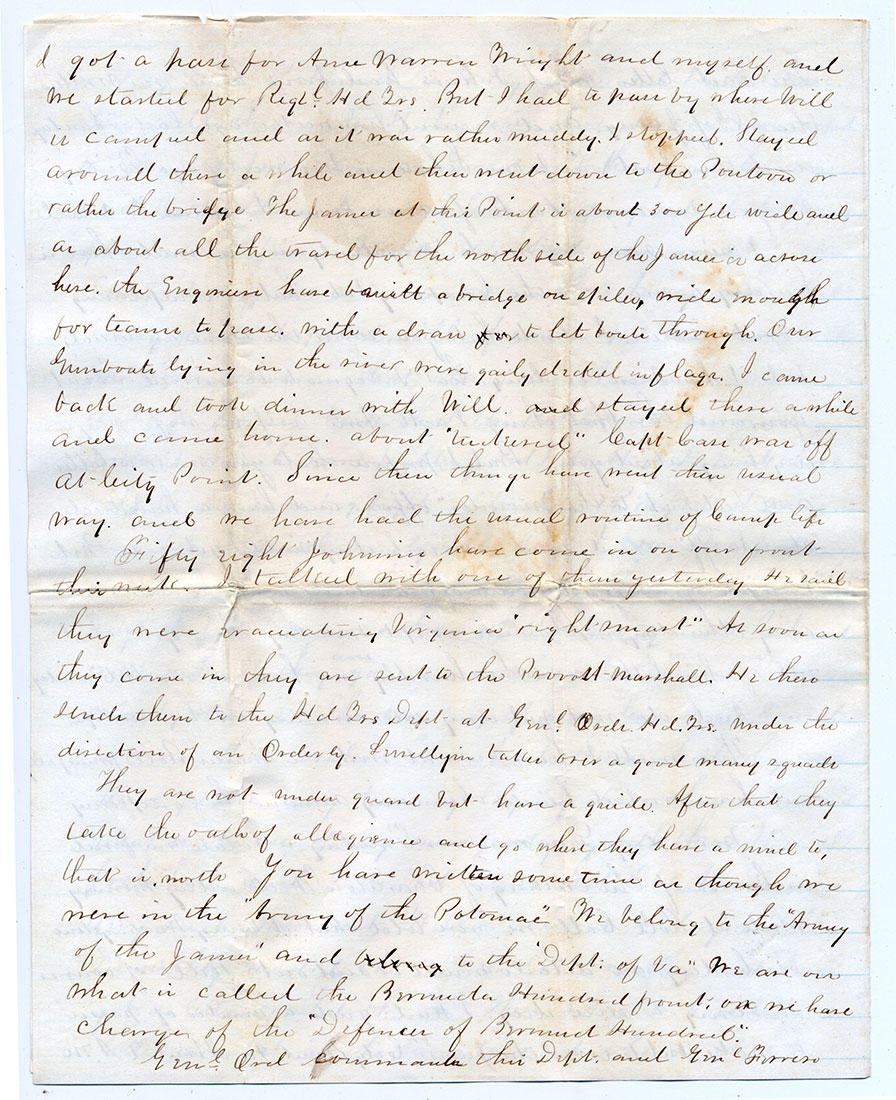 I got a pass for Ame Warren Wright and myself. and
we started for Regtl. Hd Qrs. But I had to pass by where Will
is camped and as it was rather muddy. I stopped. Stayed
around there a while and then went down to the Pontoon or
rather the bridge The James at this Point is about 300 Yds wide and
as about all the travel for the north side of the James is across
here. the Engineers have built a bridge on spiles, wide enough
for teams to pass. with a draw to let boats through. Our
Gunboats lying in the river were gaily decked in flags. I came
back and took dinner with Will. and stayed there a while
and come home. about "tuckered" Capt Case was off
at City Point. Since then things have went their usual
way. and we have had the usual routine of Camp life
Fifty eight Johnnies have come in on our front
this week. I talked with one of them yesterday He said
they were evacuating Virginia "right smart" As soon as
they come in they are sent to the Provost Marshall. He then
sends them to the Hd Qrs Dept at Genl Ords. Hd. Qrs. under the
direction of an Orderly. Lwellyn takes over a good many squads
They are not under guard but have a guide. After that they
take the oath of allegience and go where they have a mind to,
that is. north You have written some time as though we
were in the "Army of the Potomac" We belong to the "Army
of the James" and belong to the "Dept. of Va" We are on
what is called the Bermuda Hundred front. or we have
charge of the "Defences of Bermud Hundred".
Genl Ord commands this Dept. and Genl Ferrero